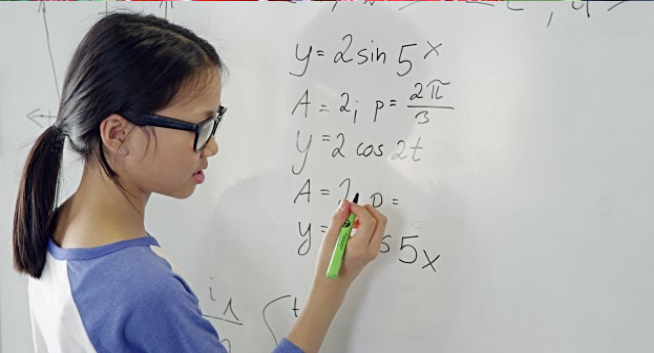 y = 2 sin 5 x
A = 2; p = 2π/3
y = 2 cos 2t
A = 2, p =
y = s 5x